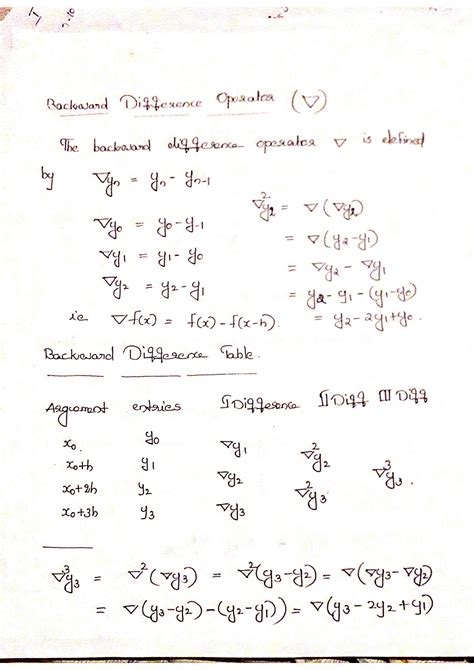 Backward Difference Operator (∇)
The backward difference operator ∇ is defined
by ∇yn = yn - yn-1
∇y0 = y0 - y-1
∇y1 = y1 - y0
∇y2 = y2 - y1
i.e ∇f(x) = f(x) - f(x-h).
∇²y2 = ∇(∇y2)
= ∇(y2 - y1)
= ∇y2 - ∇y1
= y2 - y1 - (y1 - y0)
= y2 - 2y1 + y0.
Backward Difference Table.
Argument entries I Difference II Diff III Diff
x0. y0
∇y1
x0+h y1 ∇²y2
∇y2 ∇³y3.
x0+2h y2 ∇²y3
x0+3h y3 ∇y3
∇³y3 = ∇²(∇y3) = ∇²(y3 - y2) = ∇(∇y3 - ∇y2)
= ∇(y3 - y2) - (y2 - y1)) = ∇(y3 - 2y2 + y1)